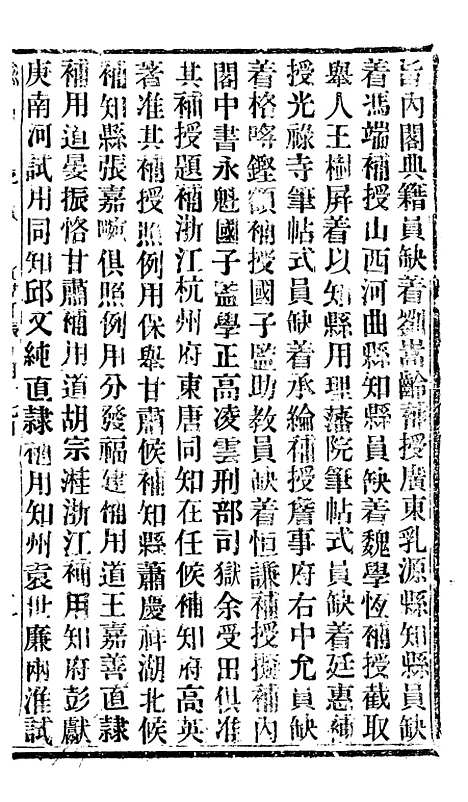 旨內閣典籍員缺着劉嵩齡補授廣東乳源縣知縣員缺
着馮端補授山西河曲縣知縣員缺着魏學恆補授截取
舉人王樹屏着以知縣用理藩院筆帖式員缺着廷惠補
授光祿寺筆帖式員缺着承綸補授詹事府右中允員缺
着格喀鏗額補授國子監助教員缺着恒謙補授擬補內
閣中書永魁國子監學正高凌雲刑部司獄余受田俱准
其補授題補浙江杭州府東唐同知在任候補知府高英
著准其補授照例用保舉甘肅候補知縣蕭慶祥湖北候
補知縣張嘉 俱照例用分發福建補用道王嘉善直隸
補用道晏振恪甘肅補用道胡宗溎浙江補用知府彭獻
庚南河試用同知邱文純直隸補用知州袁世廉兩淮試